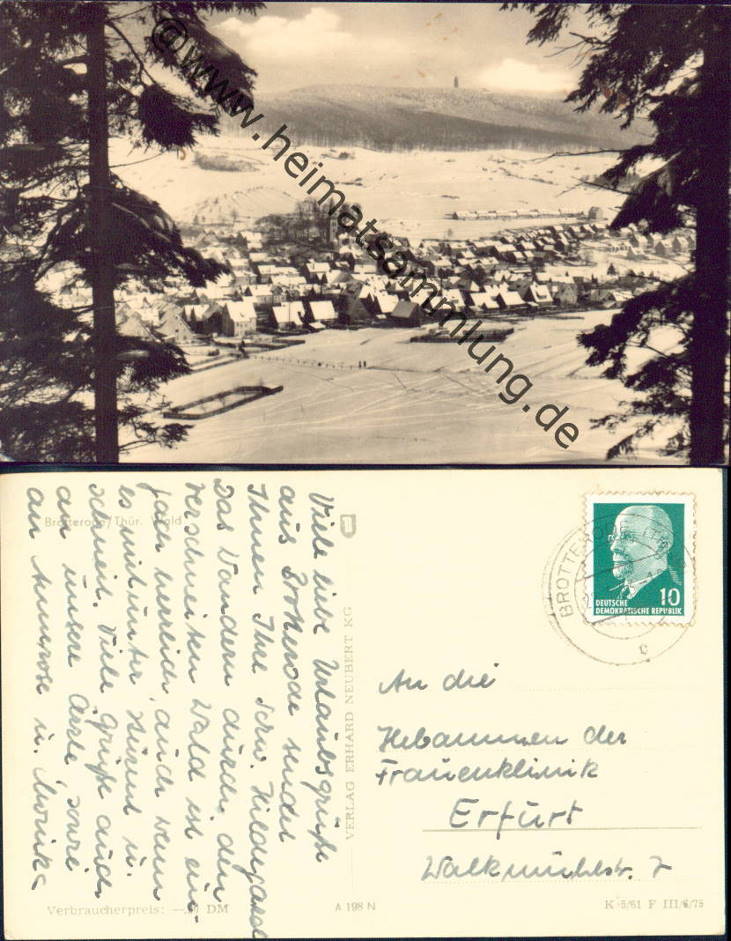 ©www.heimatsammlung.de
Brotterode/Thür. Wald
Viele liebe Urlaubsgrüße
aus Brotterode sendet
Ihnen Ihre Schw. Hildegard
Das Wandern durch den
verschneiten Wald ist ein-
fach herrlich, auch wenn
es mitunter stürmt u.
schneit. Viele Grüße auch
an unsere Ärzte sowie
an Annerose u. Monika
VERLAG ERHARD NEUBERT KG
BROTTERODE
c
10
DEUTSCHE
DEMOKRATISCHE REPUBLIK
An die
Hebammen der
Frauenklinik
Erfurt
Walkmühlstr. 7
Verbraucherpreis: DM
A 198 N
K 5/61 F III/6/75